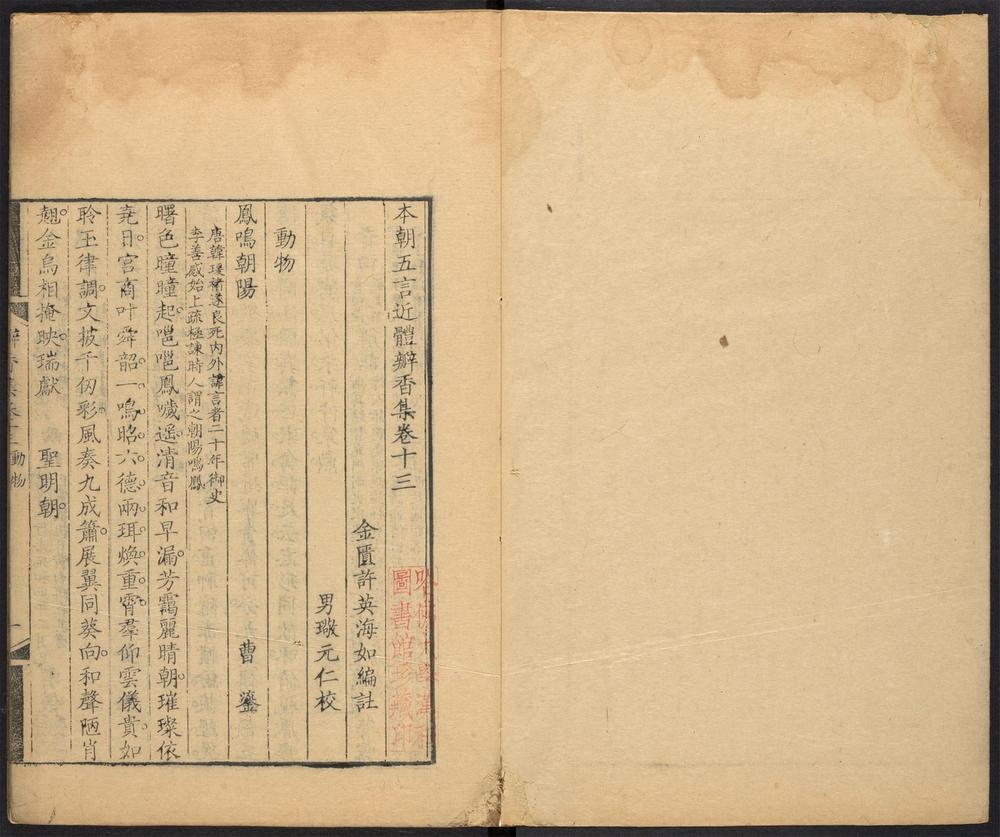 本朝五言近體瓣香集卷十三
金匱許英海如編註
男璈元仁校
動物
鳳鳴朝陽 曹鎏
唐韓瑗褚遂良死內外諱言者二十年御史
李善感始上疏極諫時人謂之朝陽鳴鳳
曙色曈曈起。噰噰鳳噦遙。清音和早漏。芳靄麗晴朝。璀璨依
堯日。宮商叶舜韶。一鳴昭六德。兩珥煥重霄。羣仰雲儀貴。如
聆玉律調。文披千仞彩。風奏九成簫。展翼同葵向。和聲陋肖
翹。金烏相掩映。瑞獻 聖明朝。
動物
哈佛大學漢和
圖書館珍藏印